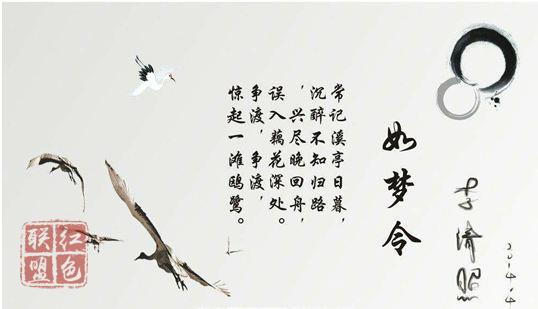 如梦令
李清照
2014.4
常记溪亭日暮，
沉醉不知归路
，兴尽晚回舟，
误入藕花深处。
争渡，争渡，
惊起一滩鸥鹭。
红色
联盟